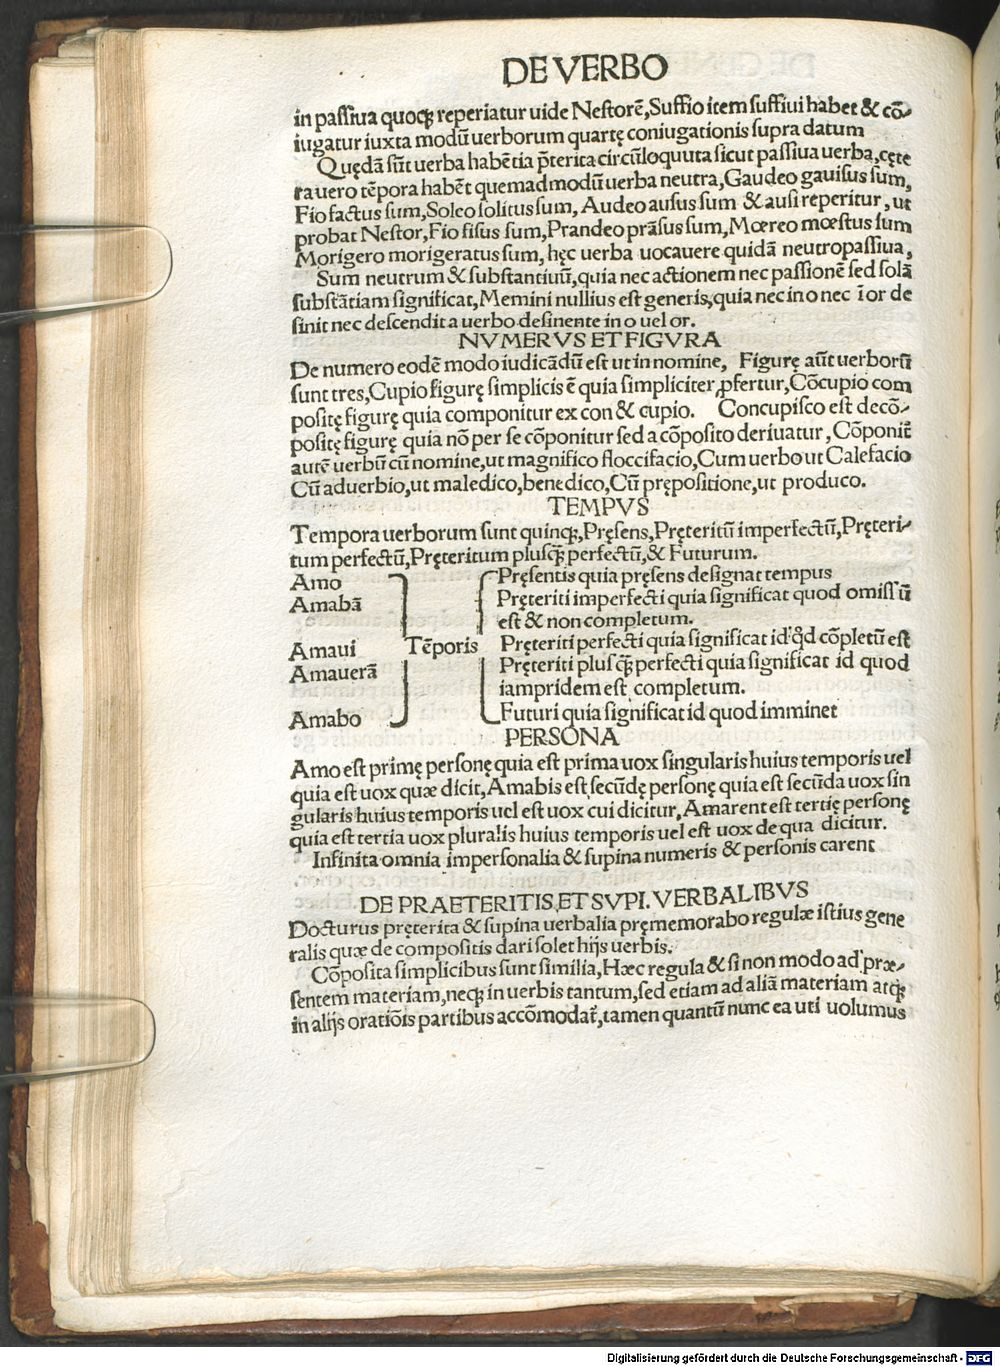 DE VERBO
in passiua quoqꝫ reperiatur uide Nestorē, Suffio item suffiui habet & cō-
iugatur iuxta modū uerborum quartę coniugationis supra datum
Quędā sūt uerba habētia p̄terita circūloquuta sicut passiua uerba, cęte
ra uero tēpora habēt quemadmodū uerba neutra, Gaudeo gauisus sum,
Fio factus sum, Soleo solitus sum, Audeo ausus sum & ausi reperitur, ut
probat Nestor, Fio fisus sum, Prandeo prāsus sum, Mœreo mœstus sum
Morigero morigeratus sum, hęc uerba uocauere quidā neutropassiua,
Sum neutrum & substantiuū, quia nec actionem nec passionē sed solā
substātiam significat, Memini nullius est generis, quia nec in o nec ī or de
sinit nec descendit a uerbo desinente in o uel or.
NVMERVS ET FIGVRA
De numero eodē modo iudicādū est ut in nomine, Figurę aūt uerborū
sunt tres, Cupio figurę simplicis ē quia simpliciter ꝓfertur, Cōcupio com
positę figurę quia componitur ex con & cupio. Concupisco est decō-
positę figurę quia nō per se cōponitur sed a cōposito deriuatur, Cōponit̄
autē uerbū cū nomine, ut magnifico floccifacio, Cum uerbo ut Calefacio
Cū aduerbio, ut maledico, benedico, Cū prępositione, ut produco.
TEMPVS
Tempora uerborum sunt quinqꝫ, Pręsens, Pręteritū imperfectū, Pręteri-
tum perfectū, Pręteritum plusqꝫ perfectū, & Futurum.
Amo Pręsentis quia pręsens designat tempus
Amabā Pręteriti imperfecti quia significat quod omissū
est & non completum.
Amaui Tēporis Pręteriti perfecti quia significat id qd̓ cōpletū est
Amauerā Pręteriti plusqꝫ perfecti quia significat id quod
iampridem est completum.
Amabo Futuri quia significat id quod imminet
PERSONA
Amo est primę personę quia est prima uox singularis huius temporis uel
quia est uox quæ dicit, Amabis est secūdę personę quia est secūda uox sin
gularis huius temporis uel est uox cui dicitur, Amarent est tertię personę
quia est tertia uox pluralis huius temporis uel est uox de qua dicitur.
Infinita omnia impersonalia & supina numeris & personis carent
DE PRAETERITIS, ET SVPI. VERBALIBVS
Docturus pręterita & supina uerbalia pręmemorabo regulæ istius gene
ralis quæ de compositis dari solet hijs uerbis.
Cōposita simplicibus sunt similia, Hæc regula & si non modo ad præ-
sentem materiam, neqꝫ in uerbis tantum, sed etiam ad aliā materiam atqꝫ
in alijs oratiōis partibus accōmodat̄, tamen quantū nunc ea uti uolumus
Digitalisierung gefördert durch die Deutsche Forschungsgemeinschaft - DFG